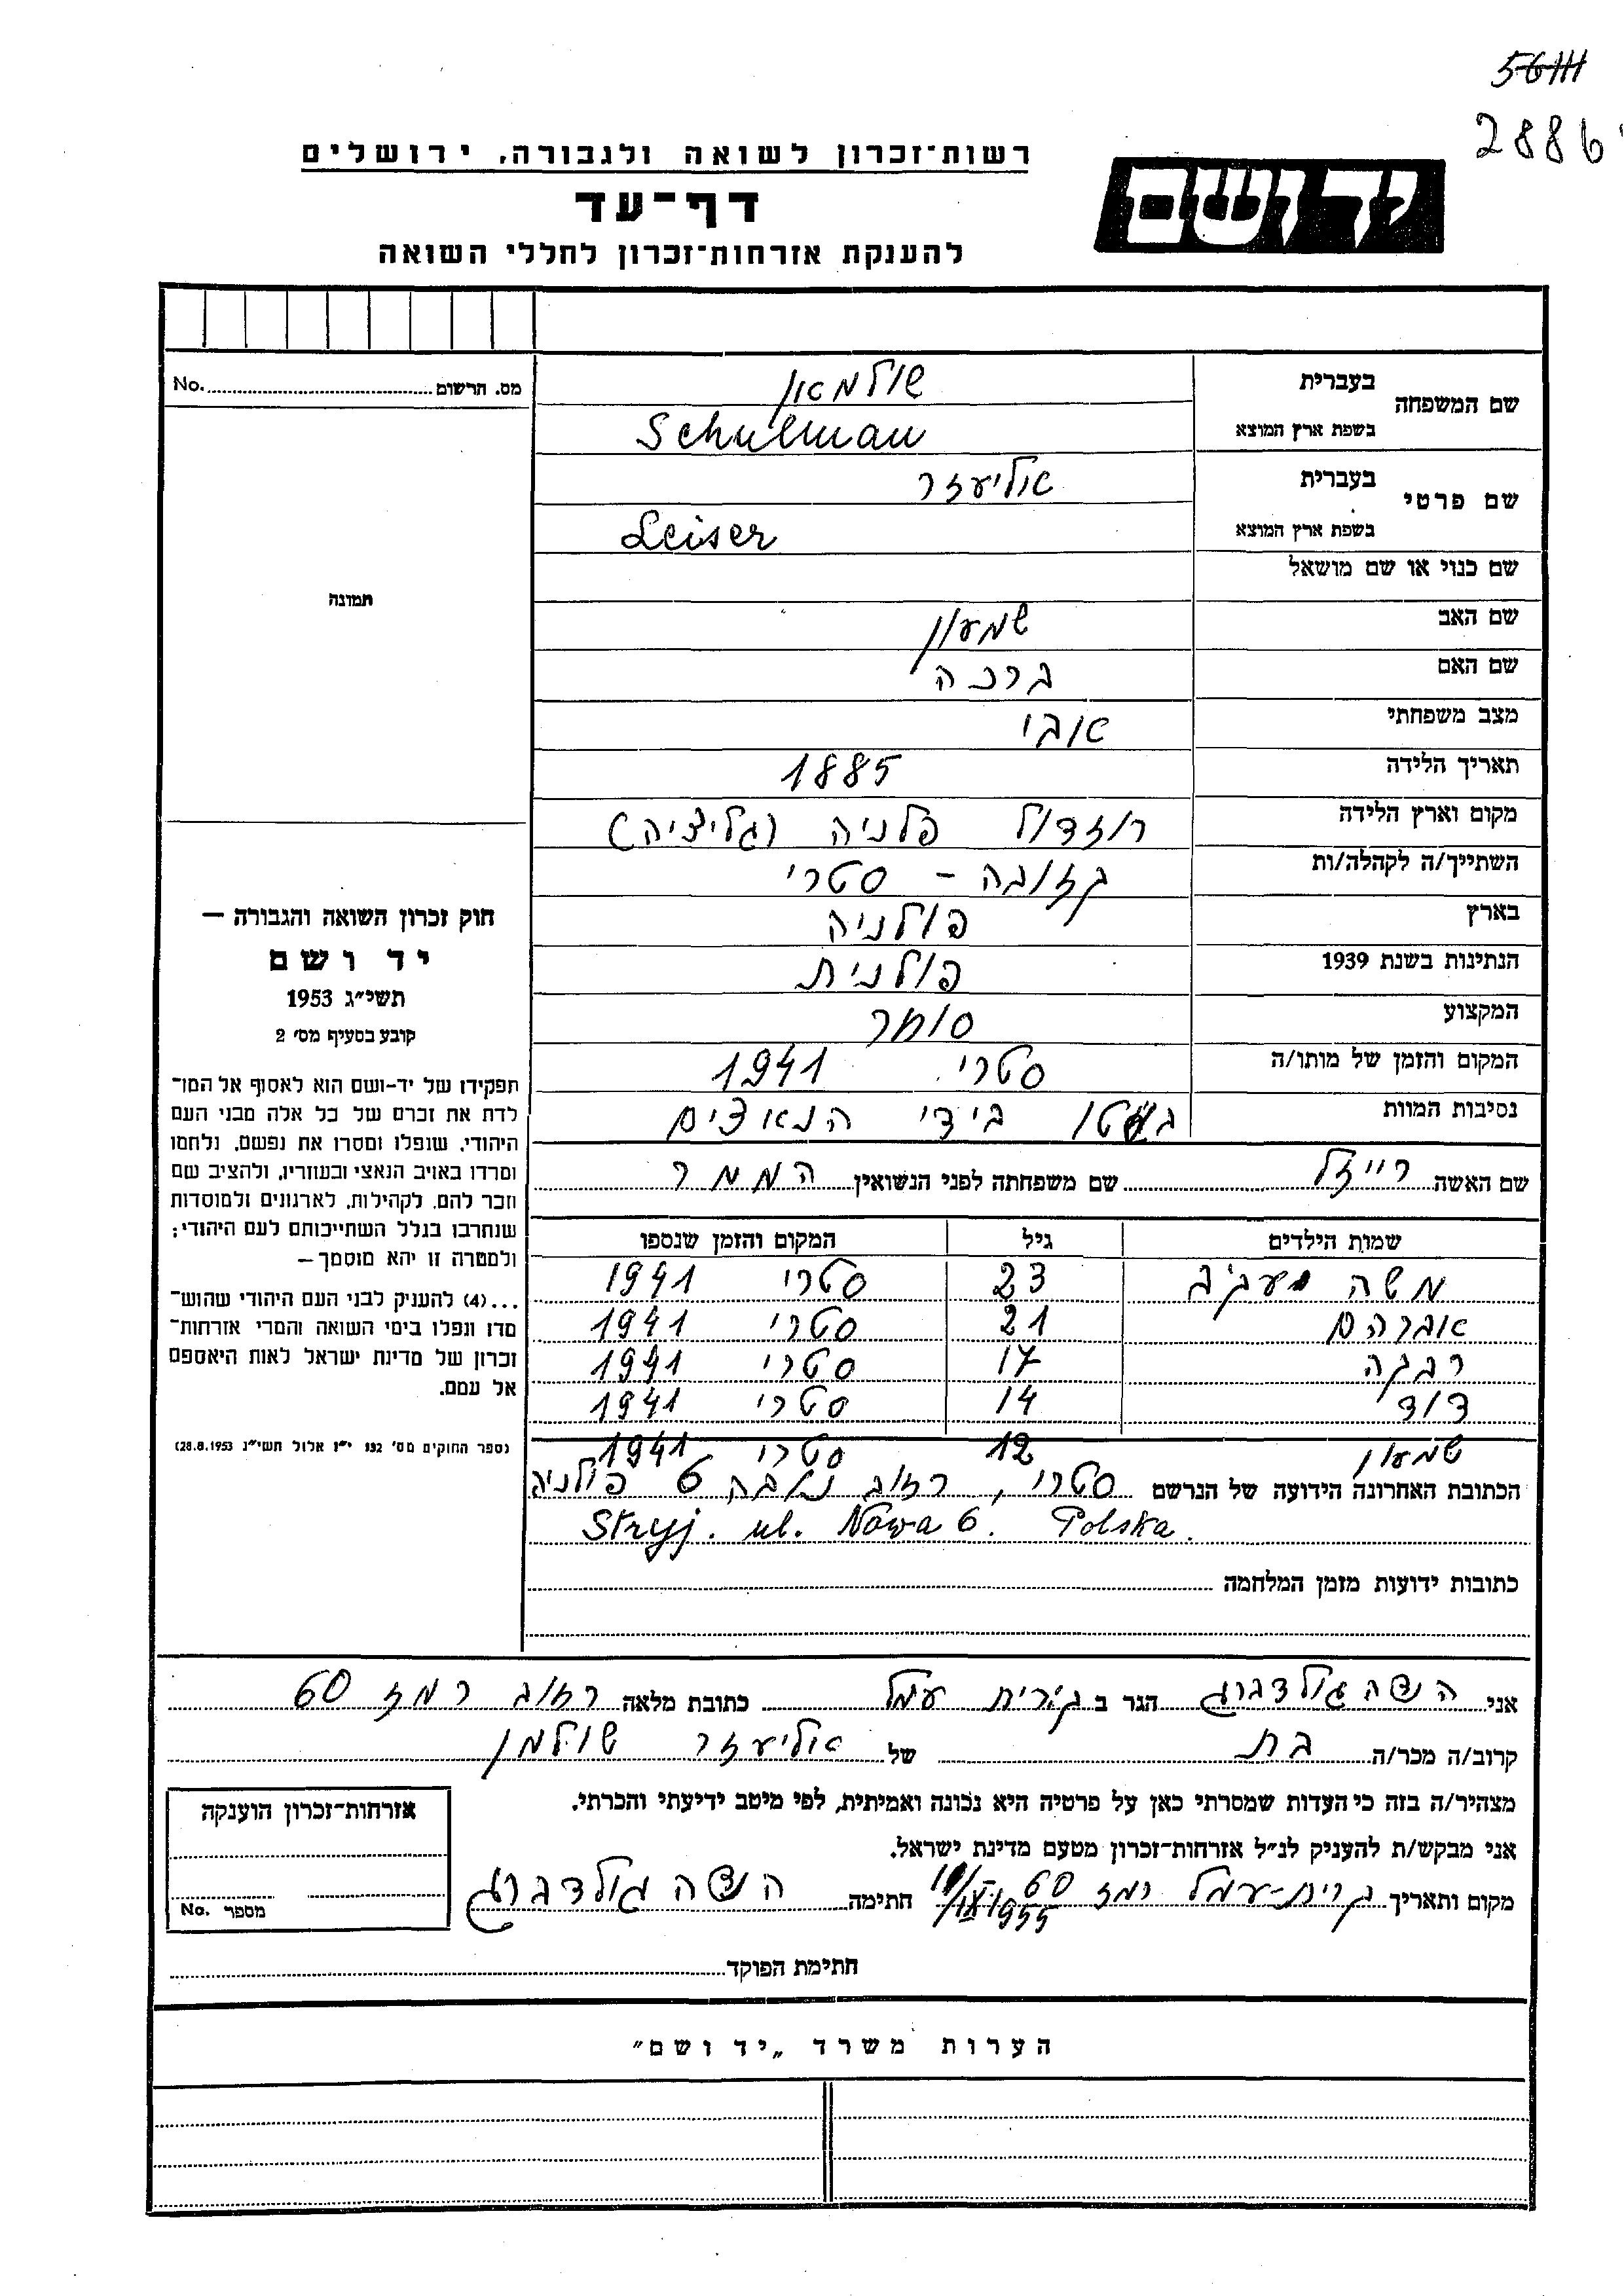 56111
2886
רשות־זכרון לשואה ולגבורה, ירושלים
יד ושם
דף־עד
להענקת אזרחות־זכרון לחללי השואה
מס. הרשום No.
שם המשפחה בעברית שולמאן
בשפת ארץ המוצא Schulman
שם פרטי בעברית אליעזר
בשפת ארץ המוצא Leiser
שם כנוי או שם מושאל
תמונה
שם האב שמעון
שם האם ברכה
מצב משפחתי אבי
תאריך הלידה 1885
מקום וארץ הלידה רוזדול פלניה (גליציה)
השתייך/ה לקהלה/ות - סטרי
בארץ פולניה
הנתינות בשנת 1939 פולנית
המקצוע סוחר
המקום והזמן של מותו/ה סטרי 1941
נסיבות המוות גטו בידי הנאצים
שם האשה רייזל שם משפחתה לפני הנשואין המר
שמות הילדים גיל המקום והזמן שנספו
משה 23 סטרי 1941
אברהם 21 סטרי 1941
רבקה 17 סטרי 1941
דוד 14 סטרי 1941
שמעון 12 סטרי 1941
הכתובת האחרונה הידועה של הנרשם סטרי, רחוב נובה 6 פולניה
Stryj. ul. Nowa 6. Polska.
כתובות ידועות מזמן המלחמה
חוק זכרון השואה והגבורה —
יד ושם
תשי״ג 1953
קובע בסעיף מס׳ 2
תפקידו של יד-ושם הוא לאסוף אל המו־
לדת את זכרם של כל אלה מבני העם
היהודי, שנפלו ומסרו את נפשם, נלחמו
ומרדו באויב הנאצי ובעוזריו, ולהציב שם
וזכר להם, לקהילות, לארגונים ולמוסדות
שנחרבו בגלל השתייכותם לעם היהודי;
ולמטרה זו יהא מוסמך —
...(4) להעניק לבני העם היהודי שהוש־
מדו ונפלו בימי השואה והמרי אזרחות־
זכרון של מדינת ישראל לאות היאספם
אל עמם.
(ספר החוקים מס׳ 132 י״ז אלול תשי״ג 28.8.1953)
אני הנצה גולדברג הגר ב קרית עמל כתובת מלאה רחוב רמז 60
קרוב/ה מכר/ה בת של אליעזר שולמן
מצהיר/ה בזה כי העדות שמסרתי כאן על פרטיה היא נכונה ואמיתית, לפי מיטב ידיעתי והכרתי.
אני מבקש/ת להעניק לנ״ל אזרחות־זכרון מטעם מדינת ישראל.
מקום ותאריך קרית-עמל רמז 60 /IX 1955 חתימה הנצה גולדברג
אזרחות־זכרון הוענקה
מספר No.
חתימת הפוקד
הערות משרד „יד ושם״